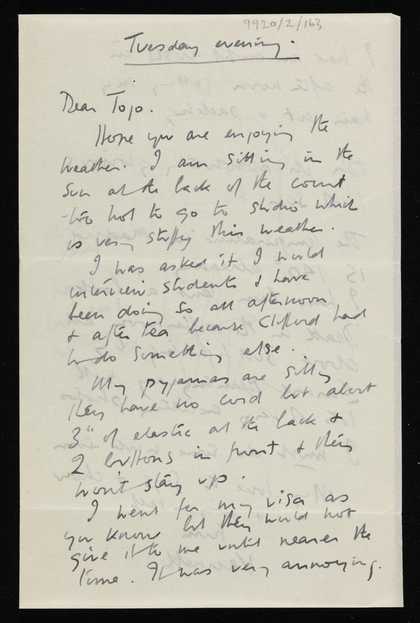 9920/2/163
Tuesday evening.
Dear Jojo.
Hope you are enjoying the
weather. I am sitting in the
sun at the back of the court
- too hot to go to studio which
is very stuffy this weather.
I was asked if I would
interview students & have
been doing so all afternoon
& after tea because Clifford had
to do something else.
My pyjamas are silly
they have no cord but about
3" of elastic at the back &
2 buttons in front & they
won't stay up.
I went for my visa as
you know but they would not
give it to me until nearer the
time. It was very annoying.